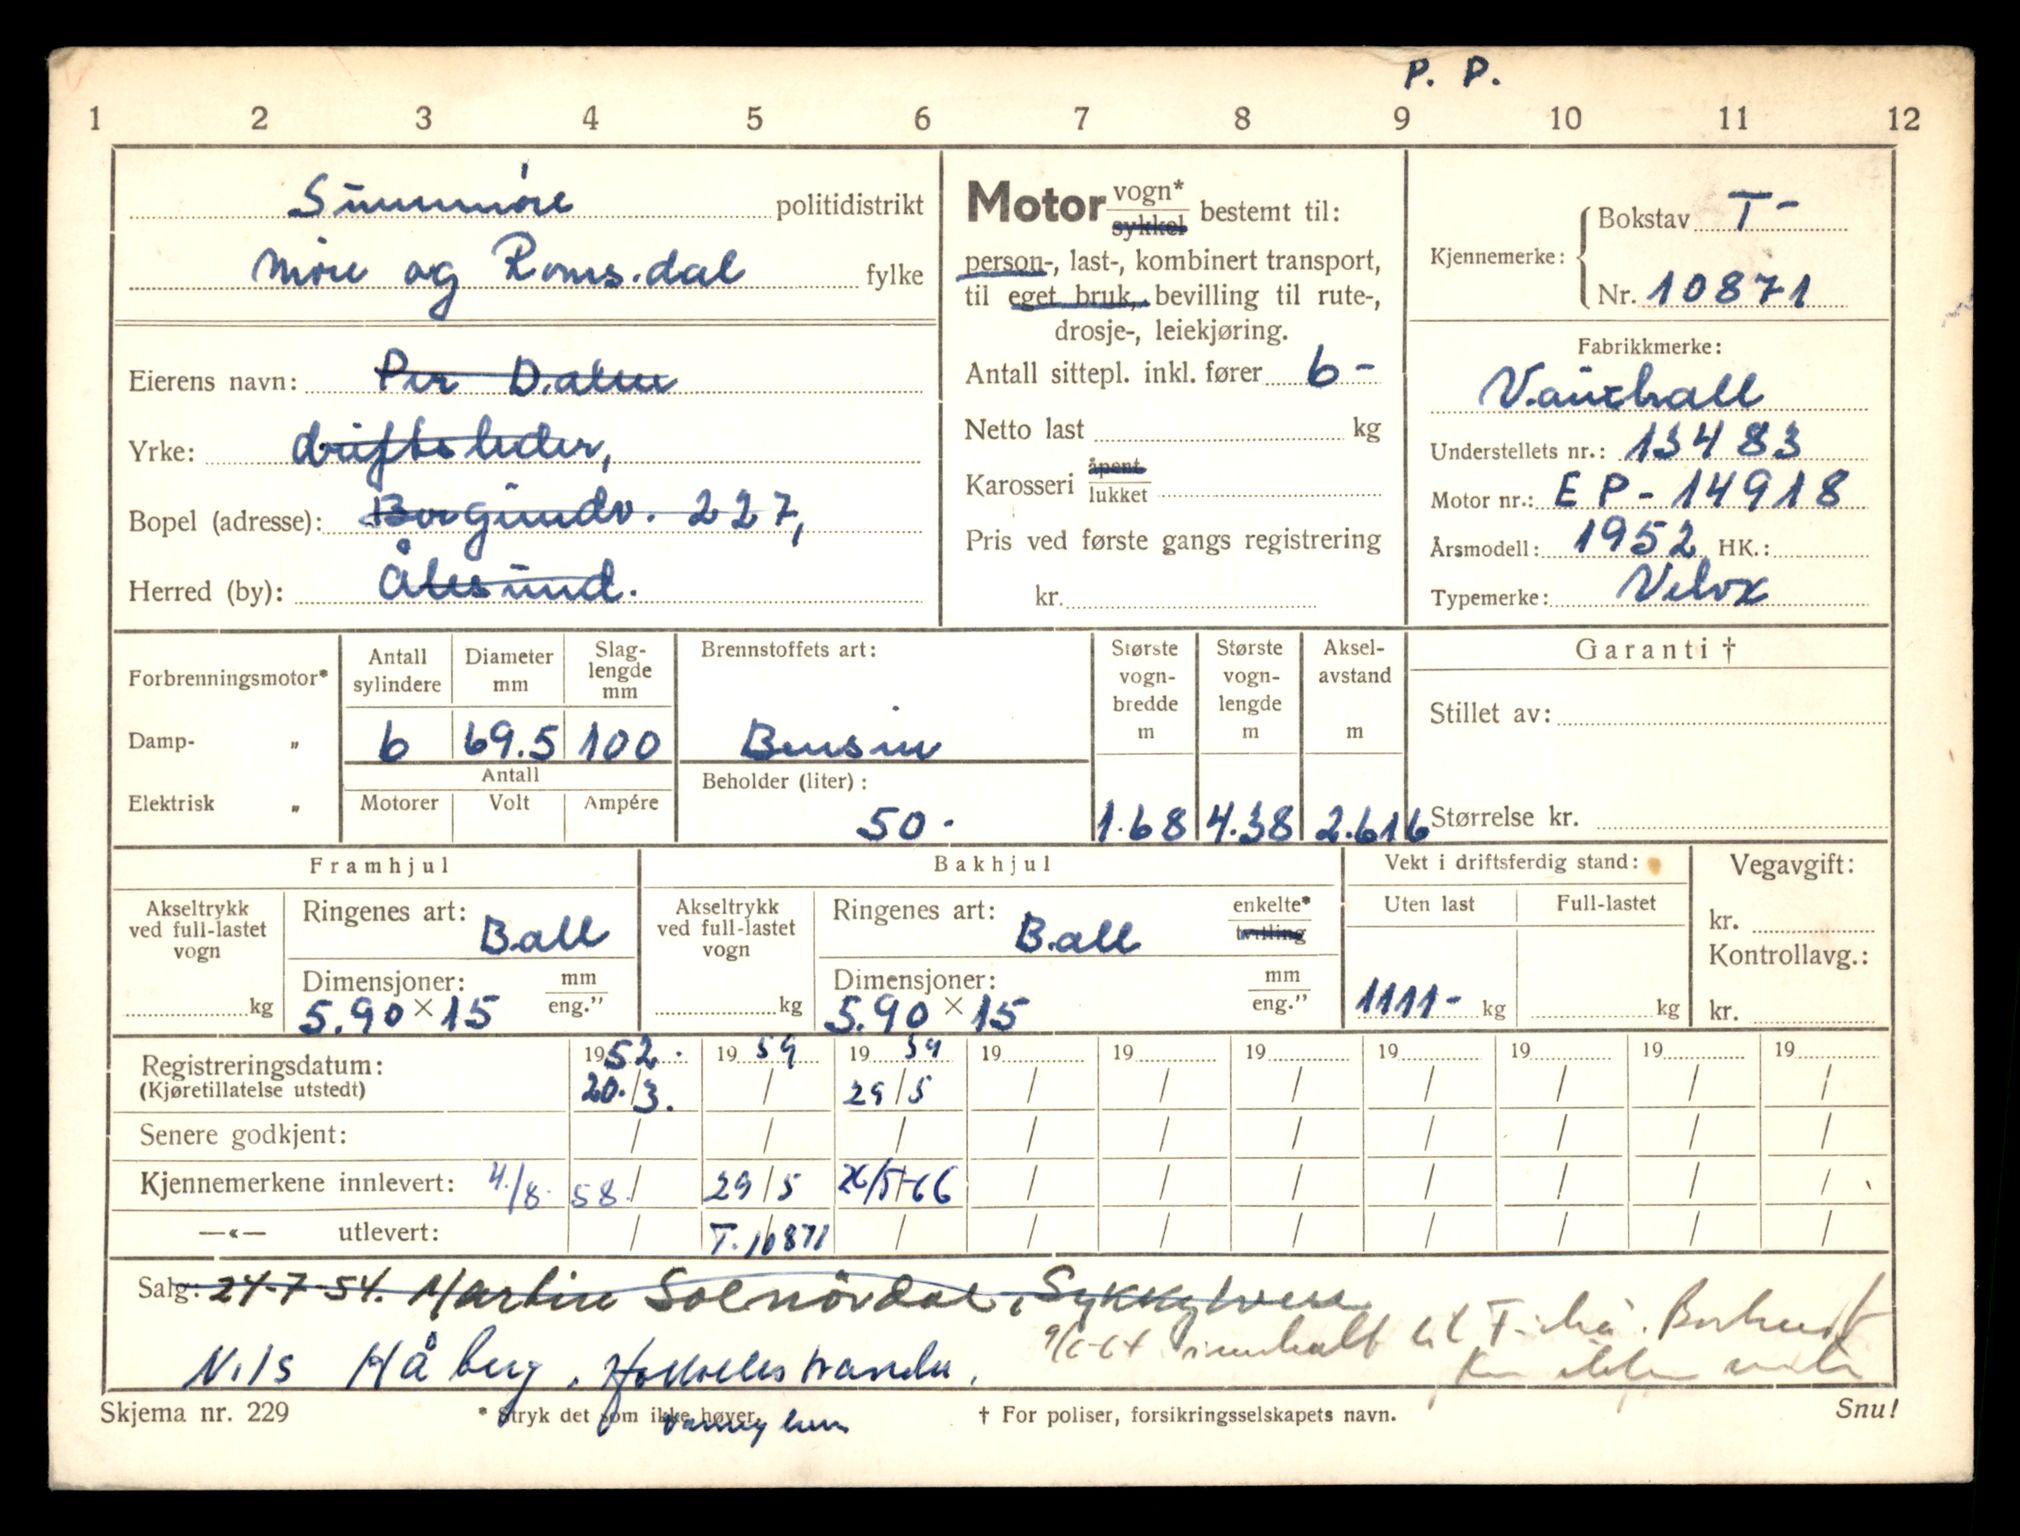 P. P.
1 2 3 4 5 6 7 8 9 10 11 12
Sunnmöre politidistrikt
Möre og Romsdal fylke
Eierens navn: Per Dalen
Yrke: driftsleder,
Bopel (adresse): Borgundv. 227,
Herred (by): Ålesund.
Motor vogn* sykkel bestemt til:
person-, last-, kombinert transport,
til eget bruk, bevilling til rute-,
drosje-, leiekjøring.
Antall sittepl. inkl. fører 6-
Netto last kg
Karosseri åpent lukket
Pris ved første gangs registrering
kr.
Kjennemerke: Bokstav T-
Nr. 10871
Fabrikkmerke:
Vauxhall
Understellets nr.: 13483
Motor nr.: EP-14918
Årsmodell: 1952 HK.:
Typemerke: Velox
Forbrenningsmotor*
Damp- "
Elektrisk "
Antall sylindere 6
Diameter mm 69.5
Slaglengde mm 100
Antall
Motorer Volt Ampére
Brennstoffets art:
Bensin
Beholder (liter):
50.
Største vognbredde m 1.68
Største vognlengde m 4.38
Akselavstand m 2.616
Garanti †
Stillet av:
Størrelse kr.
Framhjul
Akseltrykk ved full-lastet vogn kg
Ringenes art: Ball
Dimensjoner: mm eng."
5.90 × 15
Bakhjul
Akseltrykk ved full-lastet vogn kg
Ringenes art: Ball enkelte* tvilling
Dimensjoner: mm eng."
5.90 × 15
Vekt i driftsferdig stand:
Uten last Full-lastet
1111- kg kg
Vegavgift:
kr.
Kontrollavg.:
kr.
Registreringsdatum: 1952. 1959 1959 19 19 19 19 19 19 19
(Kjøretillatelse utstedt) 20./3. / 29/5 / / / / / / /
Senere godkjent: / / / / / / / / / /
Kjennemerkene innlevert: 4./8. 58. / 29/5 26/5-66 / / / / / / /
—«— utlevert: / T.10871 / / / / / / / /
Salg: 24-7-54. Martin Solnördal, Sykkylven
9/6-64 til T-
Nils Håberg.
Skjema nr. 229 * Stryk det som ikke høver. † For poliser, forsikringsselskapets navn. Snu!